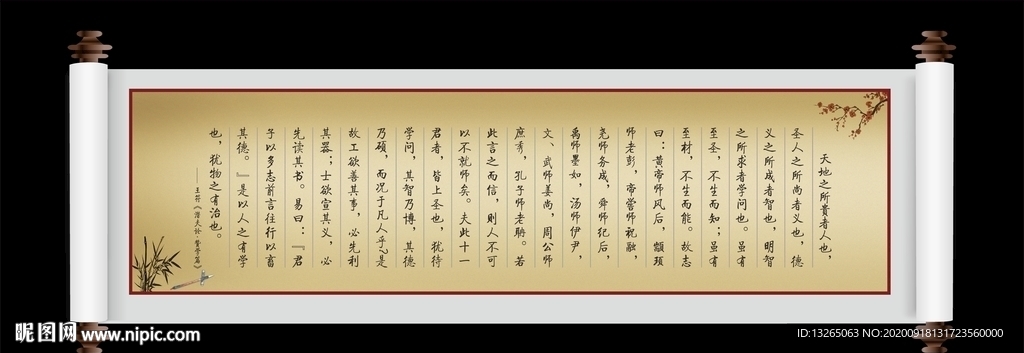 天地之所貴者人也，
圣人之所尚者义也，德
义之所成者智也，明智
之所求者学问也。虽有
至圣，不生而知；虽有
至材，不生而能。故志
曰：黄帝师风后，颛顼
师老彭，帝喾师祝融，
尧师务成，舜师纪后，
禹师墨如，汤师伊尹，
文、武师姜尚，周公师
庶秀，孔子师老聃。若
此言之而信，则人不可
以不就师矣。夫此十一
君者，皆上圣也，犹待
学问，其智乃博，其德
乃硕，而况于凡人乎？是
故工欲善其事，必先利
其器；士欲宣其义，必
先读其书。易曰：『君
子以多志前言往行以畜
其德。』是以人之有学
也，犹物之有治也。
——王符《潜夫论·赞学篇》
昵图网 www.nipic.com
ID:13265063 NO:20200918131723560000